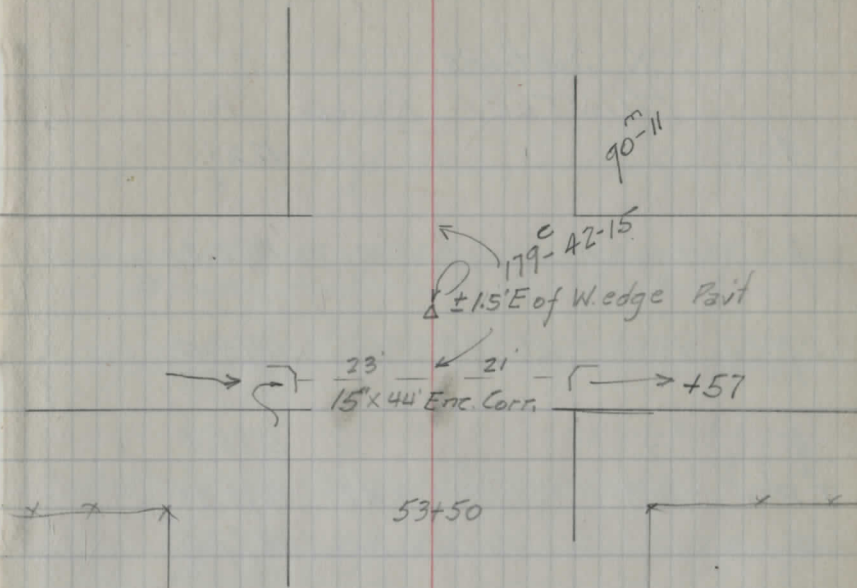 90-11
179-42-15
± 1.5' E of W. edge Pav't
23' 21'
15" x 44' Enc. Corr.
+57
53+50